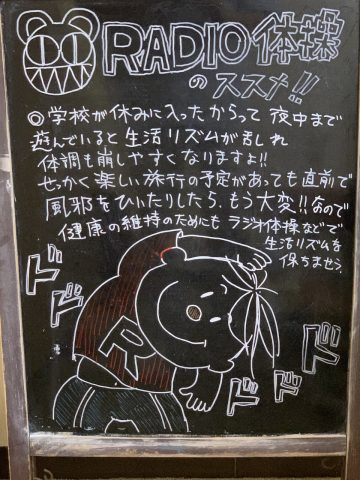 RADIO体操
のススメ!!
◎学校が休みに入ったからって夜中まで
遊んでいると生活リズムが乱れ
体調も崩しやすくなりますよ!!
せっかく楽しい旅行の予定があっても直前で
風邪をひいたりしたら、もう大変!!なので
健康の維持のためにもラジオ体操などで
生活リズムを
保ちませう。
ドド
R
ドドド